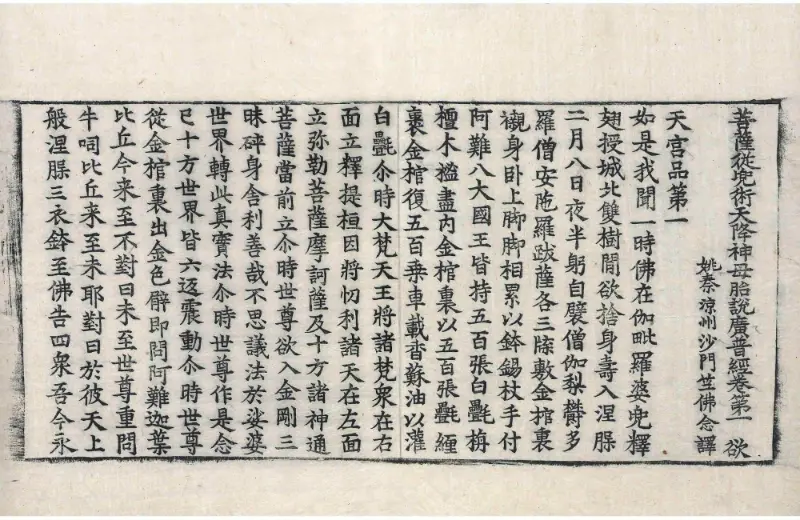 菩薩從兜術天降神母胎說廣普經卷第一 欲
姚秦涼州沙門竺佛念譯
天宮品第一
如是我聞一時佛在伽毗羅婆兜釋
翅授城北雙樹間欲捨身壽入涅槃
二月八日夜半躬自襞僧伽梨欝多
羅僧安陁羅跋薩各三牒敷金棺裏
襯身卧上脚脚相累以鉢錫杖手付
阿難八大國王皆持五百張白㲲栴
檀木櫁盡内金棺裏以五百張㲲纏
裹金棺復五百乗車載香蘇油以灌
白㲲尒時大梵天王將諸梵衆在右
面立釋提桓因將忉利諸天在左面
立弥勒菩薩摩訶薩及十方諸神通
菩薩當前立尒時世尊欲入金剛三
昧碎身舍利善哉不思議法於娑婆
世界轉此真實法尒時世尊作是念
已十方世界皆六返震動尒時世尊
從金棺裏出金色臂即問阿難迦葉
比丘今来至不對曰未至世尊重問
牛呞比丘来至未耶對曰於彼天上
般涅槃三衣鉢至佛告四衆吾今永